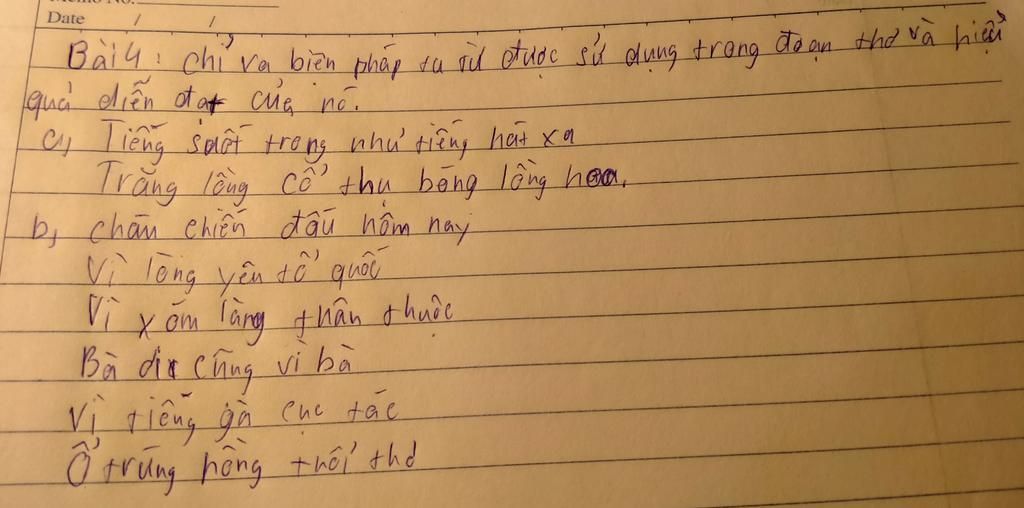 Memo No.
Date / /
Bài 4: chỉ ra biện pháp tu từ được sử dụng trong đoạn thơ và hiệu
quả diễn đạt của nó.
a, Tiếng suối trong như tiếng hát xa
Trăng lồng cổ thụ bóng lồng hoa.
b, cháu chiến đấu hôm nay
Vì lòng yêu tổ quốc
Vì xóm làng thân thuộc
Bà ơi cũng vì bà
Vì tiếng gà cục tác
Ổ trứng hồng thổi thơ